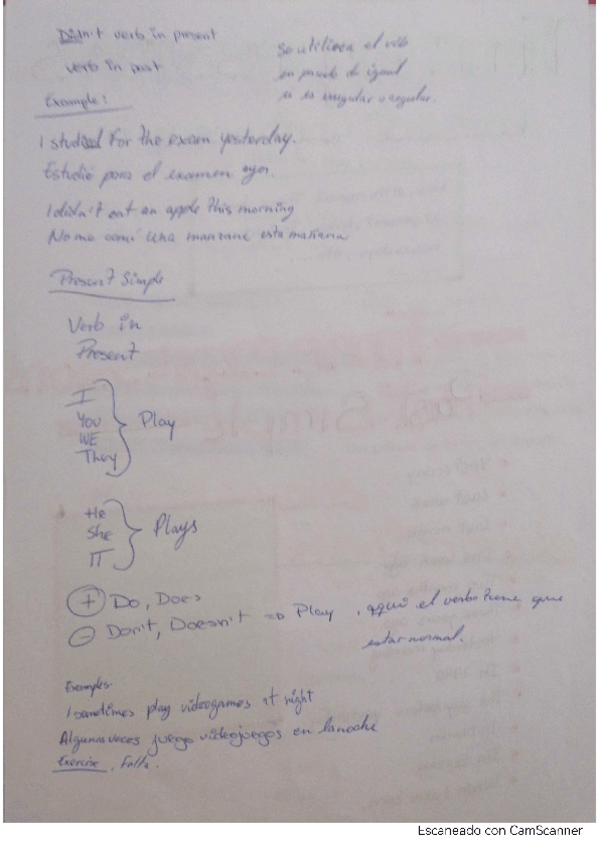 Didn't verb in present
verb in past
Se utiliza el verb
en pasado da igual
si es irregular o regular.
Example:
I studied for the exam yesterday.
Estudié para el examen ayer.
I didn't eat an apple this morning
No me comí una manzana esta mañana
Present Simple
Verb in
Present
I
You
WE
They
Play
He
She
IT
Plays
+ Do, Does
- Don't, Doesn't => Play, aquí el verbo tiene que
estar normal.
Examples.
I sometimes play videogames at night
Algunas veces juego videojuegos en la noche
Exercise, Falta.
Past Simple
Escaneado con CamScanner